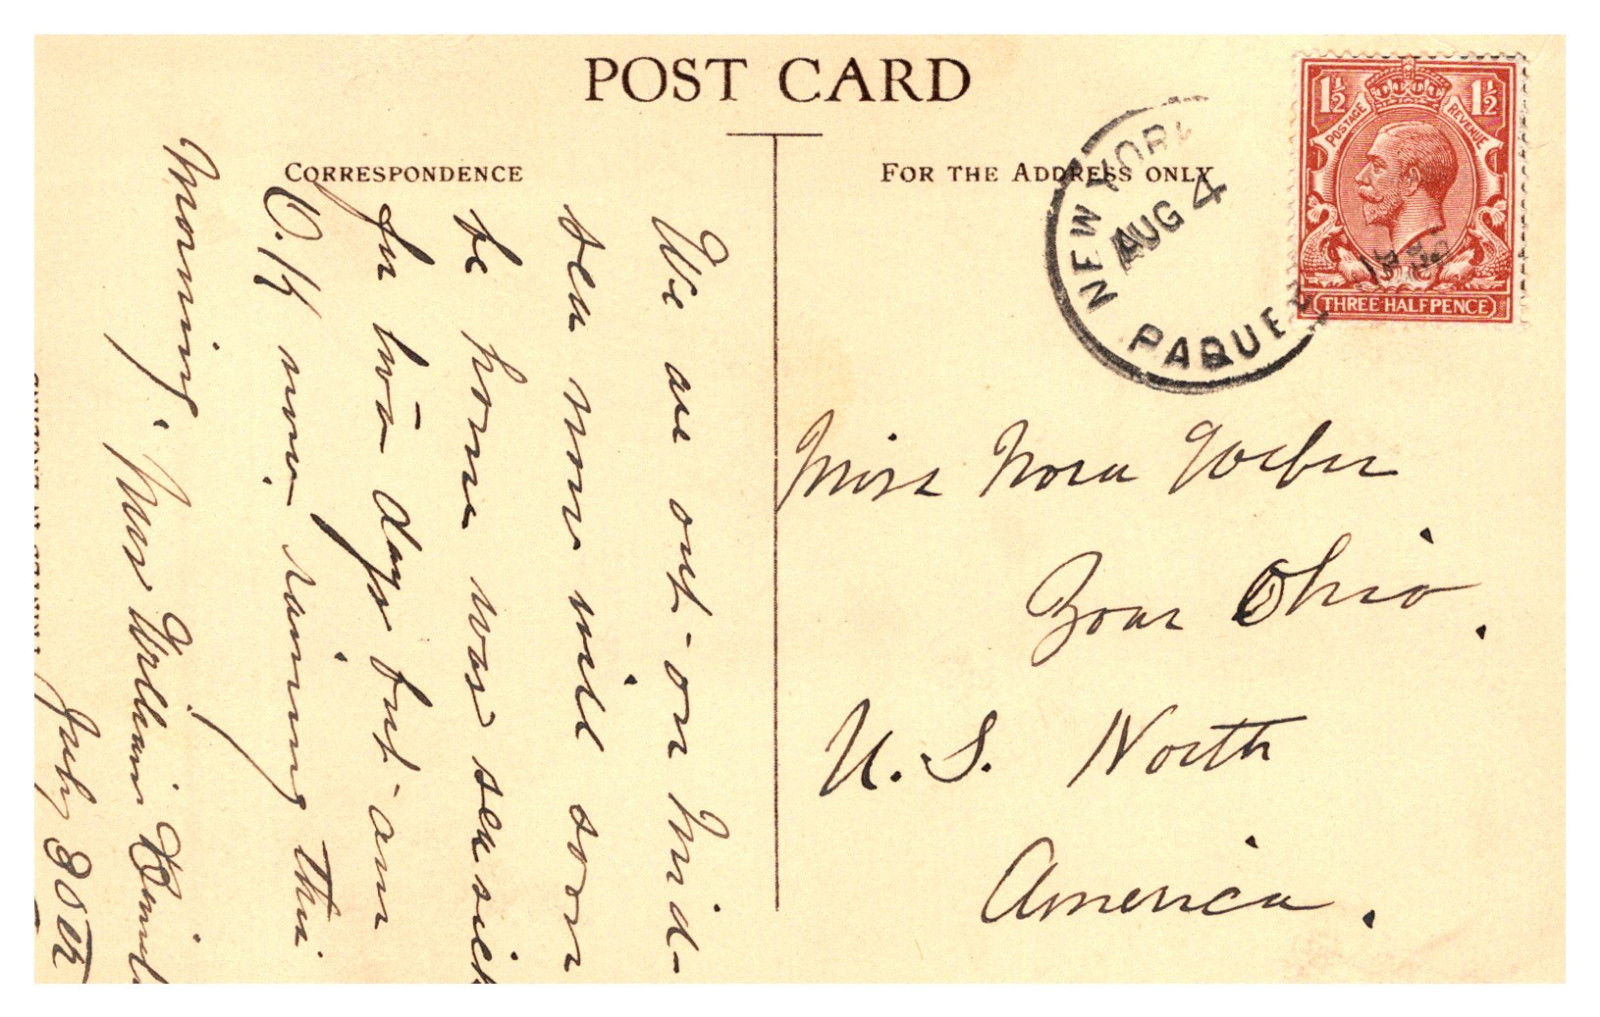 POST CARD
CORRESPONDENCE
FOR THE ADDRESS ONLY
NEW YORK
AUG 4
PAQUE
1½ 1½
POSTAGE REVENUE
THREE HALFPENCE
We are out-on mid-
sea now will soon
be home was sea sick
for two days but-am
O.K now. raining this
morning. Mrs William
July 30th
Miss Nora Weber
Zoar Ohio.
U. S. North
America.